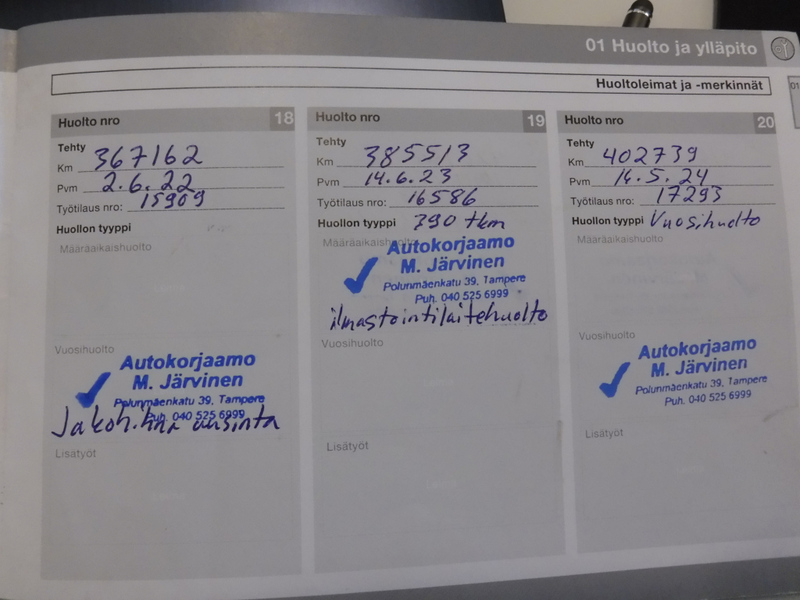 01 Huolto ja ylläpito
Huoltoleimat ja -merkinnät
01
Huolto nro 18
Tehty
Km 367162
Pvm 2.6.22
Työtilaus nro: 15909
Huollon tyyppi
Määräaikaishuolto
Vuosihuolto
Autokorjaamo
M. Järvinen
Polunmäenkatu 39, Tampere
Puh. 040 525 6999
Jakohihna uusinta
Lisätyöt
Huolto nro 19
Tehty
Km 385513
Pvm 14.6.23
Työtilaus nro: 16586
Huollon tyyppi 390 tkm
Määräaikaishuolto
Autokorjaamo
M. Järvinen
Polunmäenkatu 39, Tampere
Puh. 040 525 6999
ilmastointilaitehuolto
Vuosihuolto
Lisätyöt
Huolto nro 20
Tehty
Km 402739
Pvm 14.5.24
Työtilaus nro: 17293
Huollon tyyppi Vuosihuolto
Määräaikaishuolto
Vuosihuolto
Autokorjaamo
M. Järvinen
Polunmäenkatu 39, Tampere
Puh. 040 525 6999
Lisätyöt